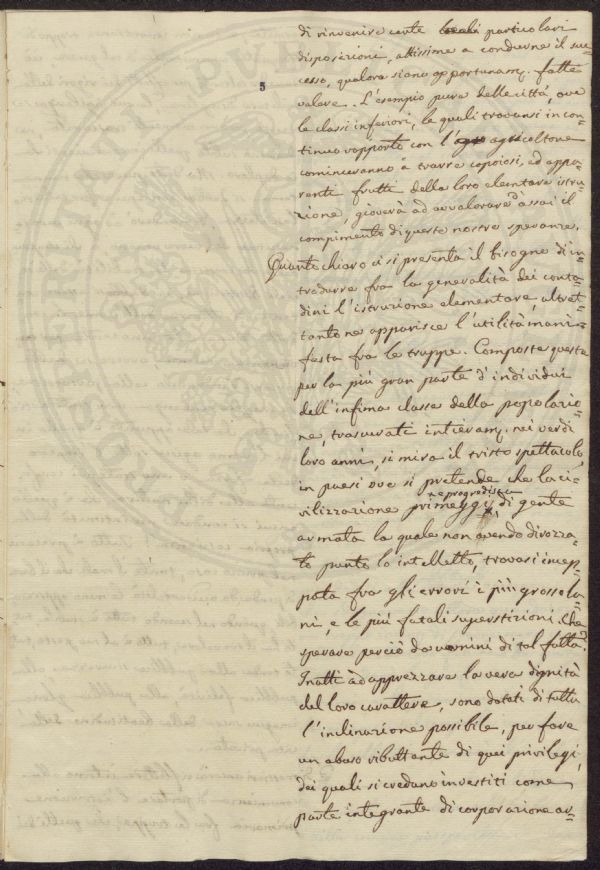 di rinvenire certe locali particolari
5
disposizioni, attissime a condurne il suc-
cesso, qualora siano opportunam. fatte
valere. L'esempio pure delle città, ove
le classi inferiori, le quali trovansi in con-
tinuo rapporto con l'agricoltore
cominceranno a trarre copiosi, ed appa-
renti frutti della loro elementare istru-
zione, gioverà ad avvalorare d'assai il
compimento di queste nostre speranze.
Quanto chiaro ci si presenta il bisogno di in-
trodurre fra la generalità dei conta-
dini l'istruzione elementare, altret-
tanto ne apparisce l'utilità mani-
festa fra le truppe. Composte queste
per la più gran parte d'individui
dell'infima classe della popolazio-
ne, trascurati intieram. nei verdi
loro anni, si mira il tristo spettacolo,
in paesi ove si pretende che la ci-
vilizzazione primeggi, e progredisca di gente
armata la quale non avendo dirozza-
to punto lo intelletto, trovasiincep-
pata fra gli errori i più grossola-
ni, e le più fatali superstizioni. Che
sperare perciò da uomini di tal fatta?
Inatti ad apprezzare la vera dignità
del loro carattere, sono dotati di tutta
l'inclinazione possibile, per fare
un abuso ributtante di quei privilegi,
dei quali si credano investiti come
parte integrante di corporazione ar-